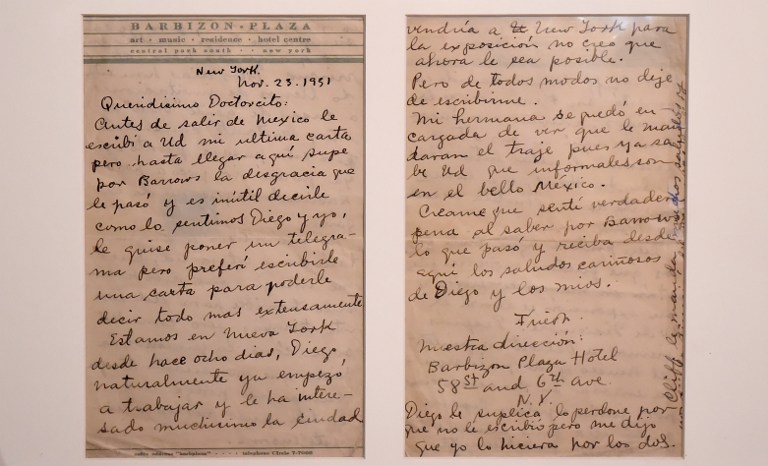 BARBIZON - PLAZA
art - music - residence - hotel centre
central park south · · new york
New York.
Nov. 23. 1931
Queridisimo Doctorcito:
Antes de salir de Mexico le
escribí a Ud mi ultima carta
pero hasta llegar aquí supe
por Barrows la desgracia que
le pasó y es inútil decirle
como lo sentimos Diego y yo,
le quise poner un telegra-
ma pero preferí escribirle
una carta para poderle
decir todo mas extensamente
Estamos en Nueva York
desde hace ocho dias, Diego
naturalmente ya empezó
a trabajar y le ha intere-
sado muchisimo la ciudad
vendría a New York para
la exposición no creo que
ahora le sea posible.
Pero de todos modos no deje
de escribirme.
Mi hermana se quedó en-
cargada de ver que le man
daran el traje pues ya sa
be Ud que informales son
en el bello México.
Creame que sentí verdadera
pena al saber por Barrows
lo que pasó y reciba desde
aquí los saludos cariñosos
de Diego y los mios.
Frieda.
Nuestra dirección:
Barbizon Plaza Hotel
58 St and 6th ave.
N.Y.
Diego le suplica lo perdone por
que no le escribio pero me dijo
que yo lo hiciera por los dos.
Cliff le manda muchos saludos